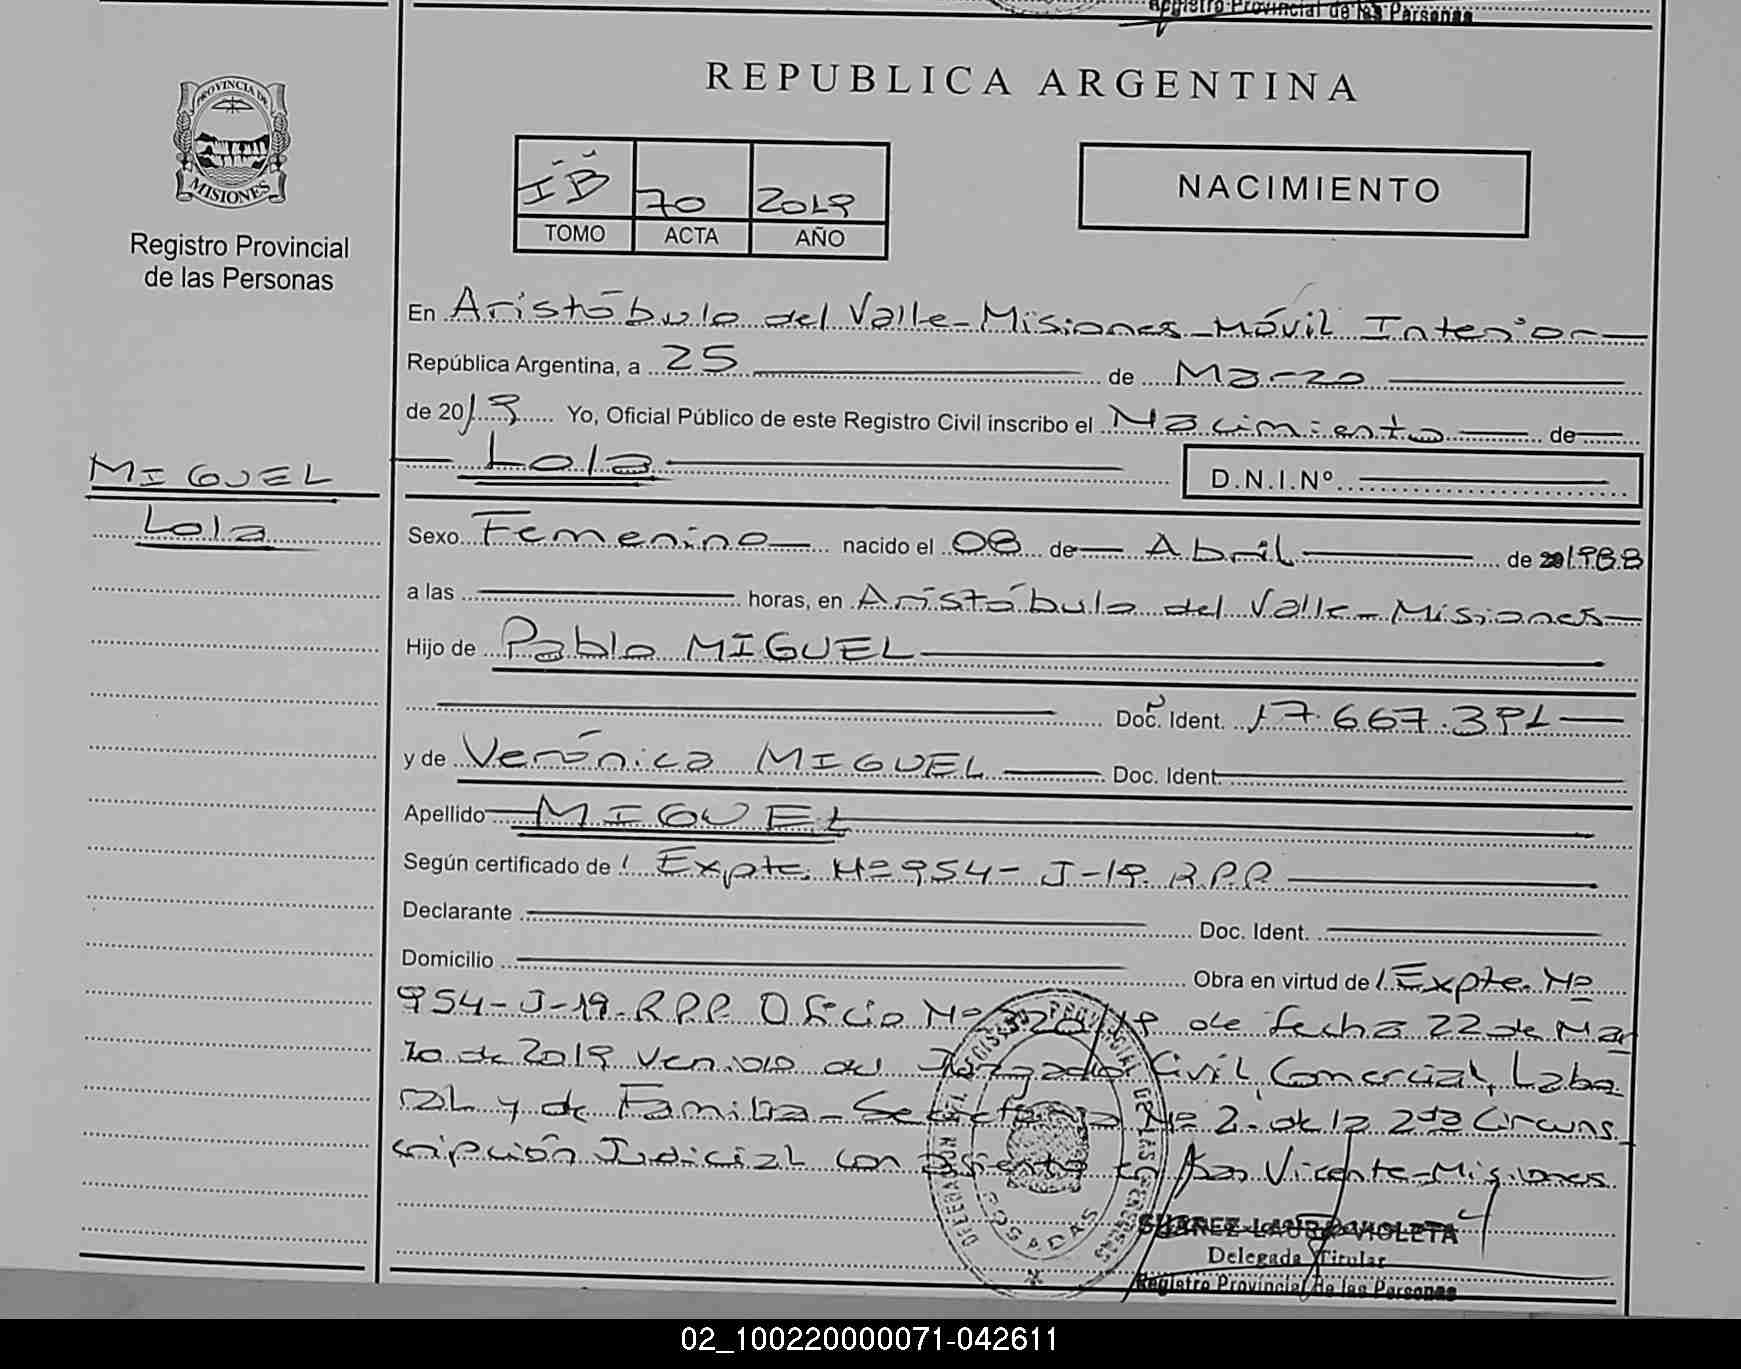 Registro Provincial de las Personas
REPUBLICA ARGENTINA
PROVINCIA DE
MISIONES
Registro Provincial
de las Personas
IB 70 2019
TOMO ACTA AÑO
NACIMIENTO
En Aristóbulo del Valle - Misiones - Móvil Interior
República Argentina, a 25 de Marzo
de 2019 Yo, Oficial Público de este Registro Civil inscribo el Nacimiento de
Lola D.N.I.Nº
MIGUEL
Lola
Sexo Femenino nacido el 08 de Abril de 1988
a las horas, en Aristóbulo del Valle - Misiones
Hijo de Pablo MIGUEL
Doc. Ident. 17.667.391
y de Verónica MIGUEL Doc. Ident.
Apellido MIGUEL
Según certificado de Expte. Nº 954-J-19 R.P.P.
Declarante Doc. Ident.
Domicilio Obra en virtud de Expte. Nº
954-J-19-R.P.P. Oficio Nº /19 de fecha 22 de Mar
zo de 2019 venido del Juzgado Civil, Comercial, Labo
ral y de Familia - Secretaría Nº 2 - de la 2da Circuns
cripción Judicial con asiento en San Vicente - Misiones
POSADAS
SUAREZ LAURA VIOLETA
Delegada Titular
Registro Provincial de las Personas
02_100220000071-042611